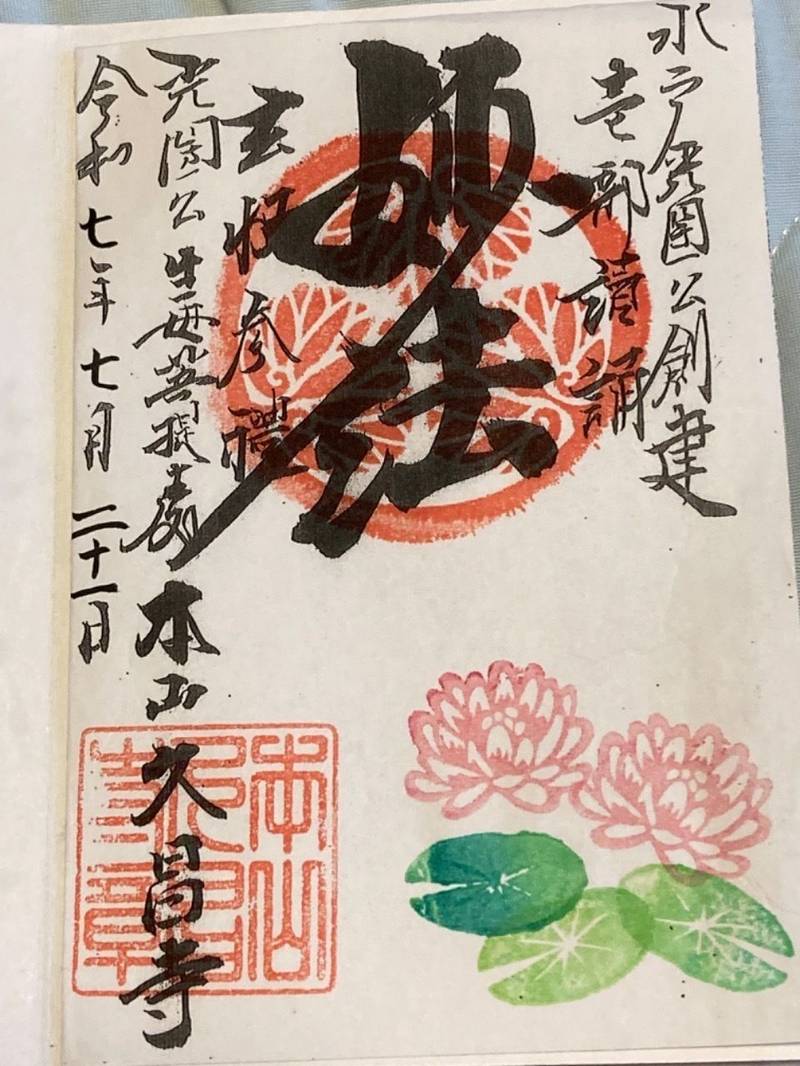 水戸光圀公創建
壱部読誦
妙法
玄収参禮
光圀公生母菩提寺
本山久昌寺
令和七年七月二十一日